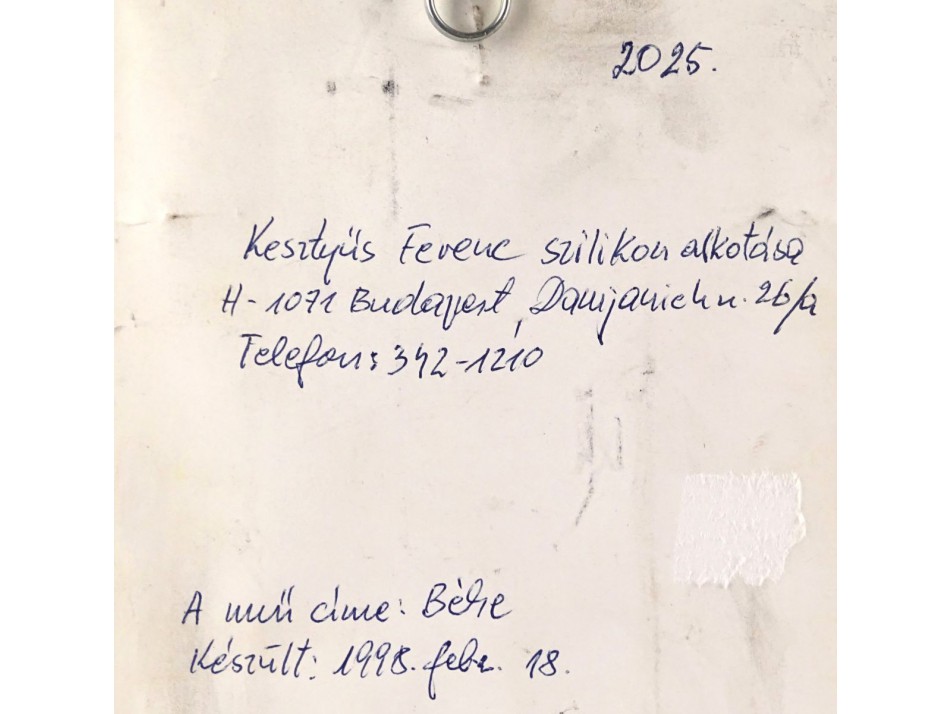 2025.
Kesztyűs Ferenc szilikon alkotása
H-1071 Budapest, Damjanich u. 26/a
Telefon: 342-1210
A mű címe: Béke
Készült: 1998. febr. 18.